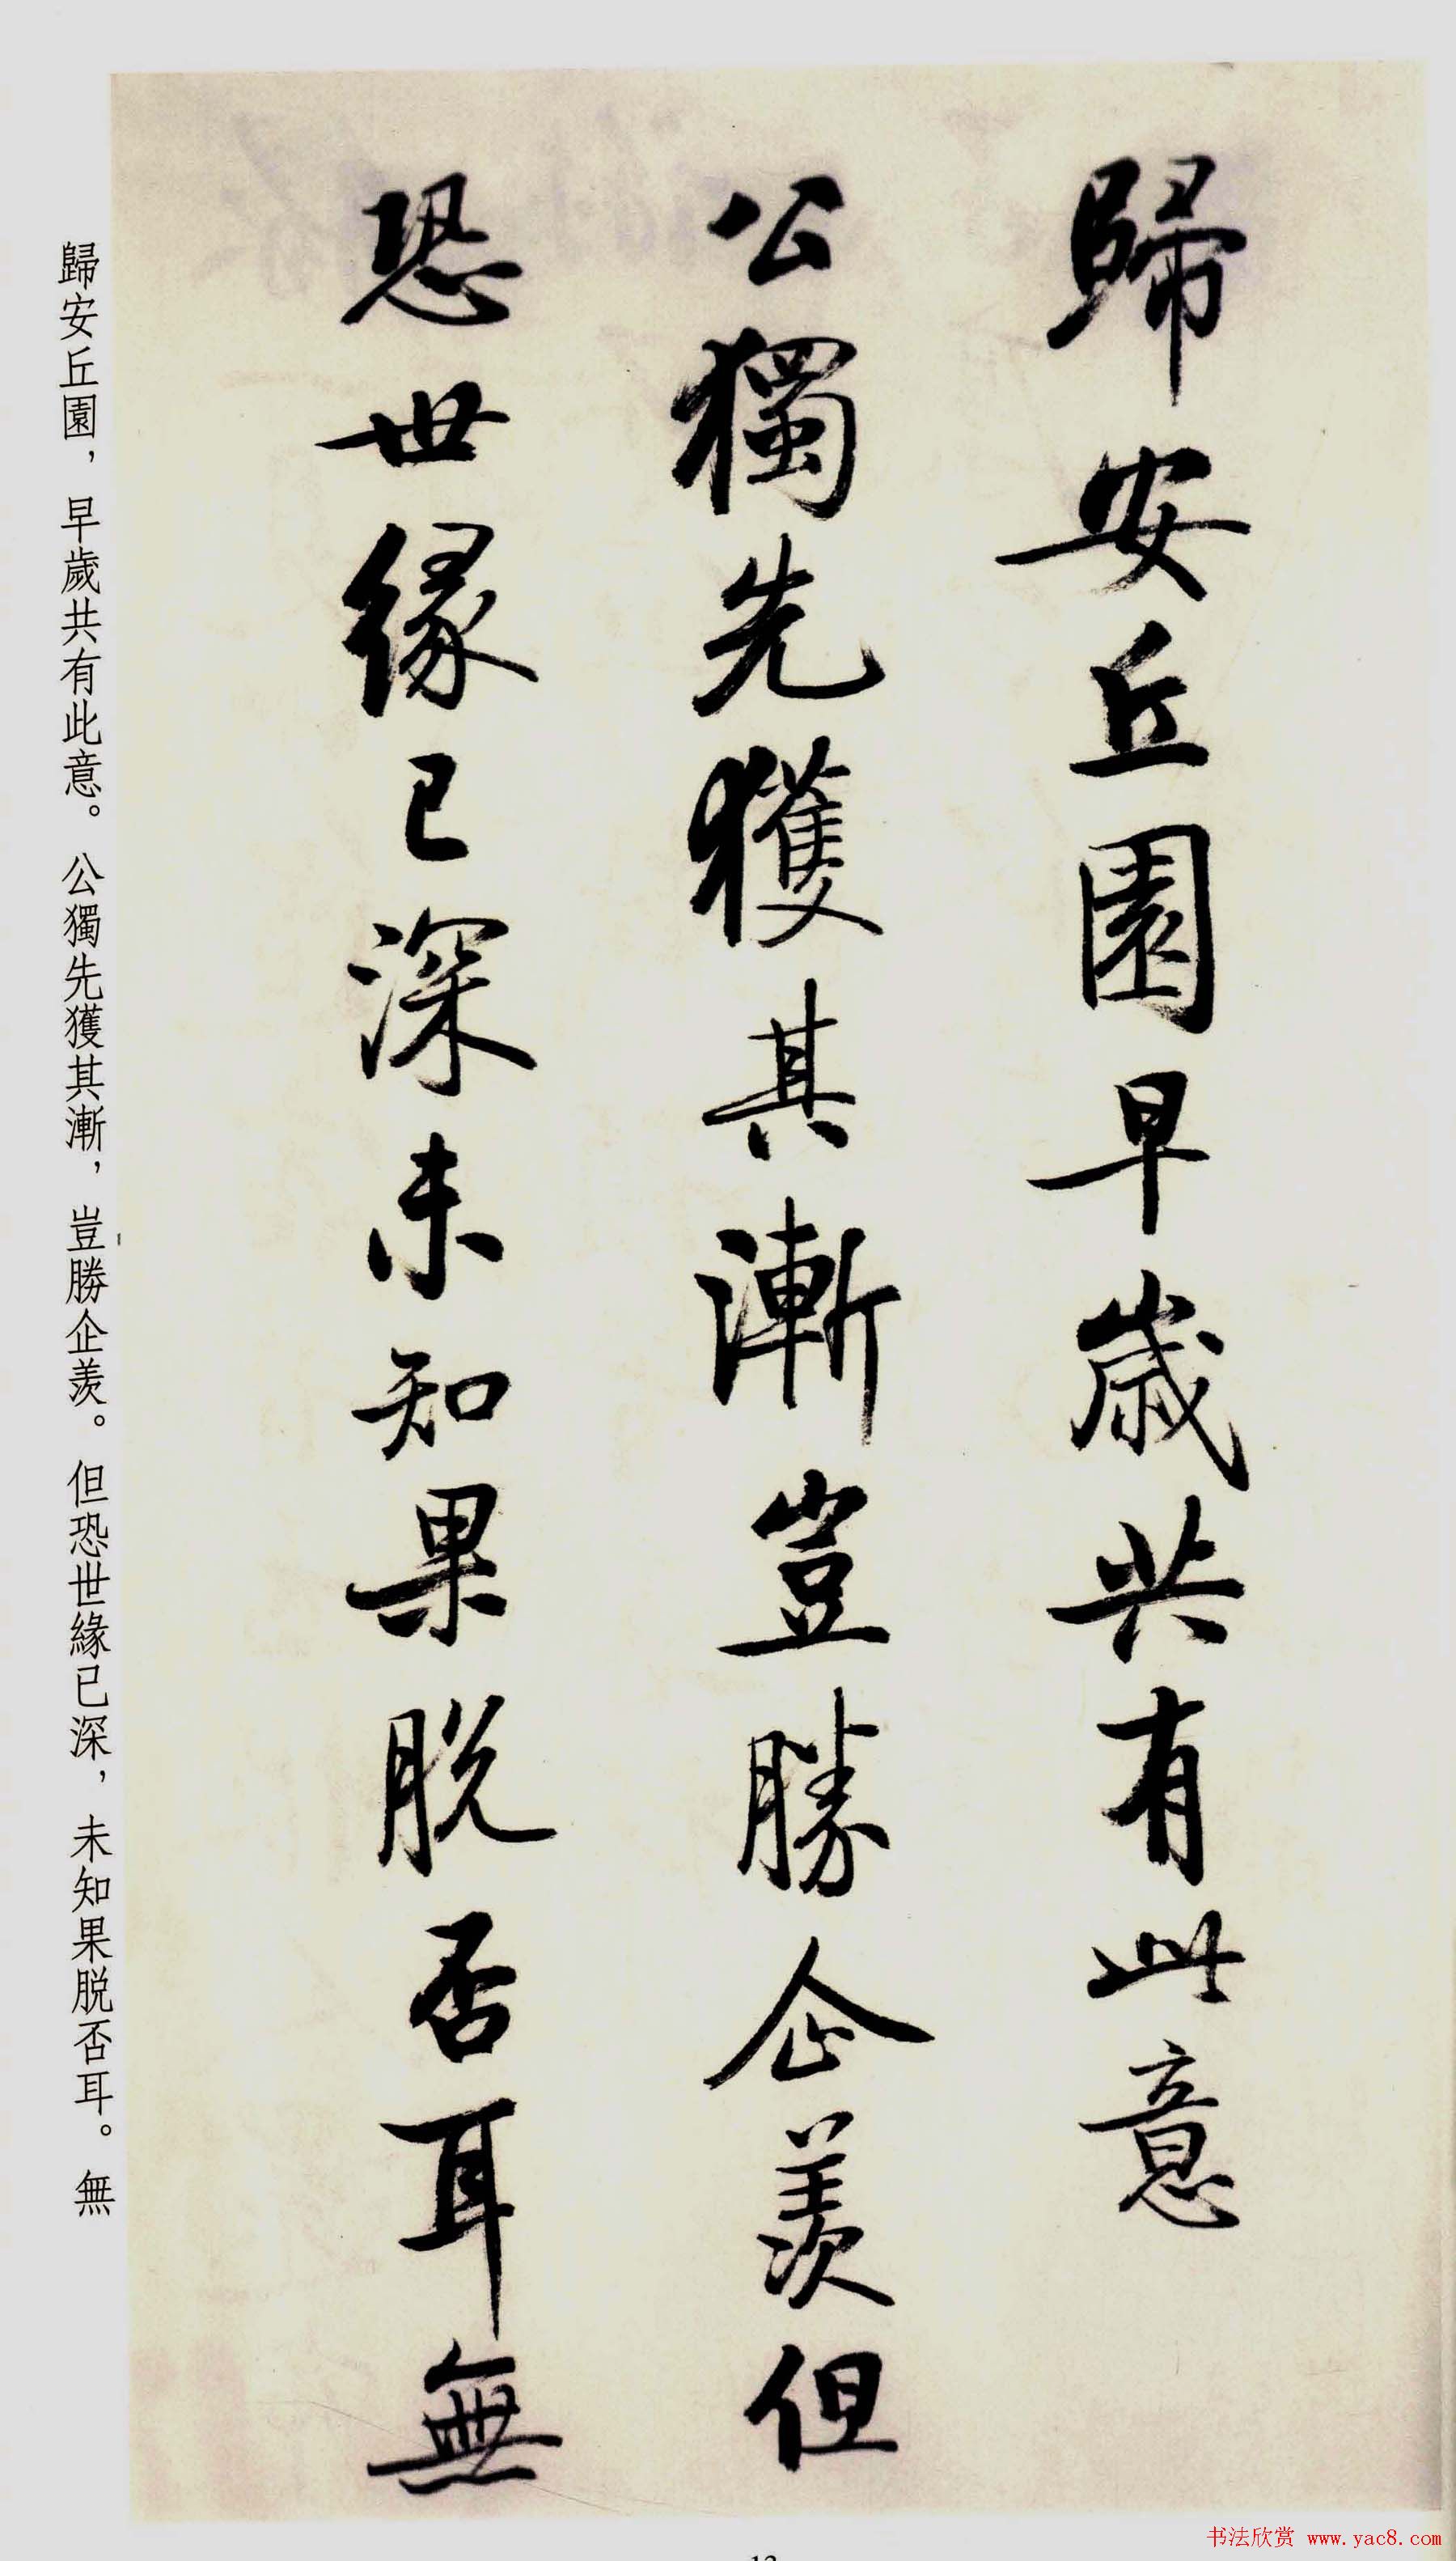 歸安丘園早歲共有此意
公獨先獲其漸豈勝企羨但
恐世緣已深未知果脫否耳無
歸安丘園，早歲共有此意。公獨先獲其漸，豈勝企羨。但恐世緣已深，未知果脫否耳。無
书法欣赏 www.yac8.com